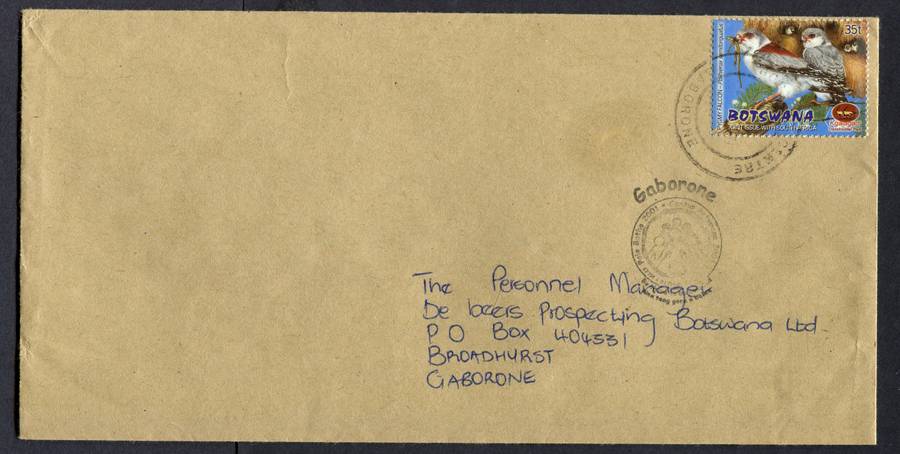 35t
BOTSWANA
JOINT ISSUE WITH SOUTH AFRICA
Gaborone
2001
The Personnel Manager
De beers Prospecting Botswana Ltd.
P O Box 404531
BROADHURST
GABORONE